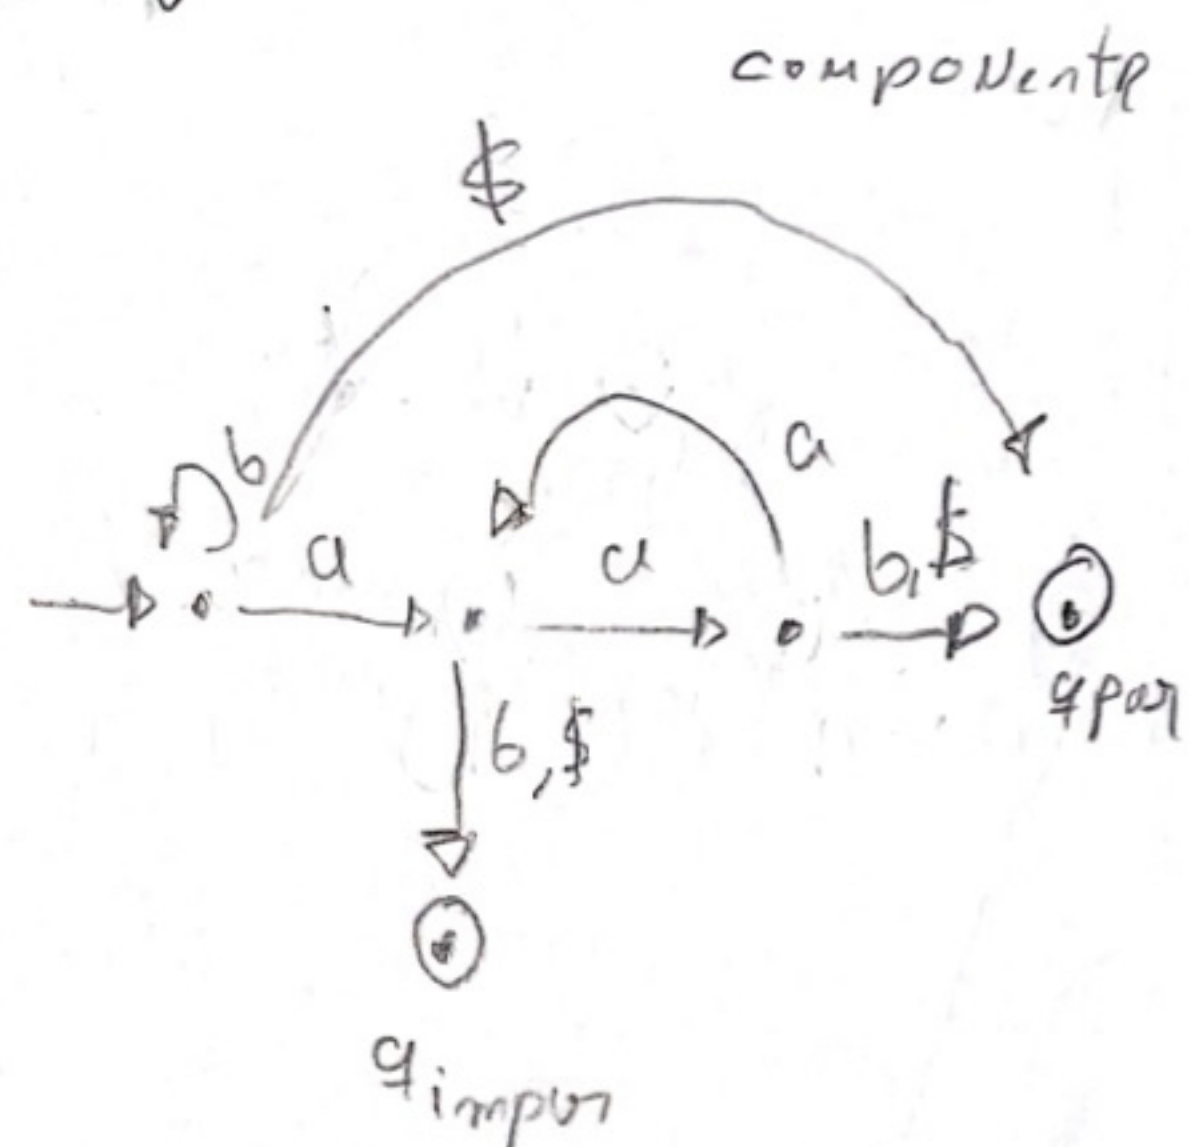 componente
$
b
a
a
a
b,$
qpar
b,$
qimpar